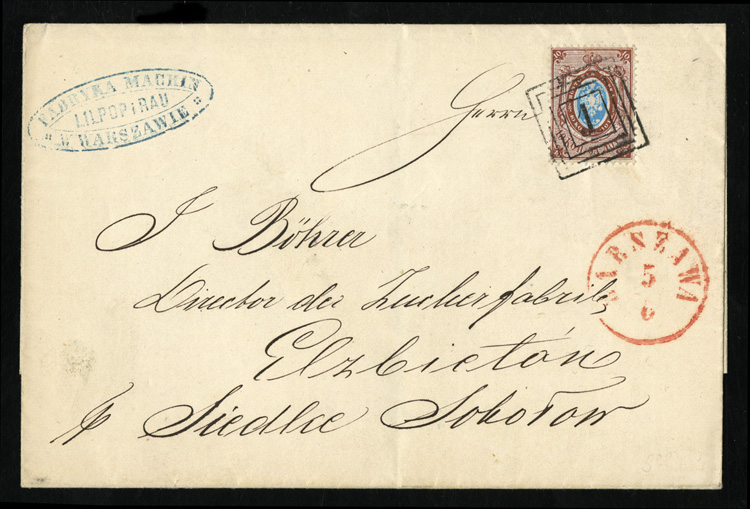 FABRYKA MACHIN
LILPOP i RAU
w WARSZAWIE
10 10
1
Herrn
J Böhrer
Director der Zuckerfabrik
Elzbietón
p Siedlce Sokołow
WARSZAWA
5
6